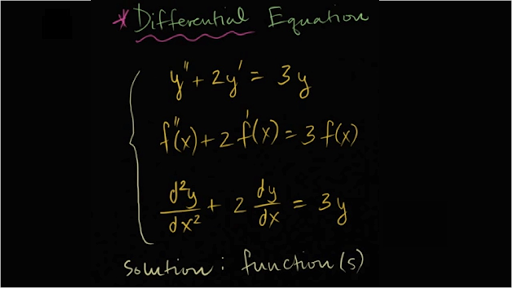 * Differential Equation
y'' + 2y' = 3y
f''(x) + 2 f'(x) = 3 f(x)
d²y/dx² + 2 dy/dx = 3y
solution: function(s)